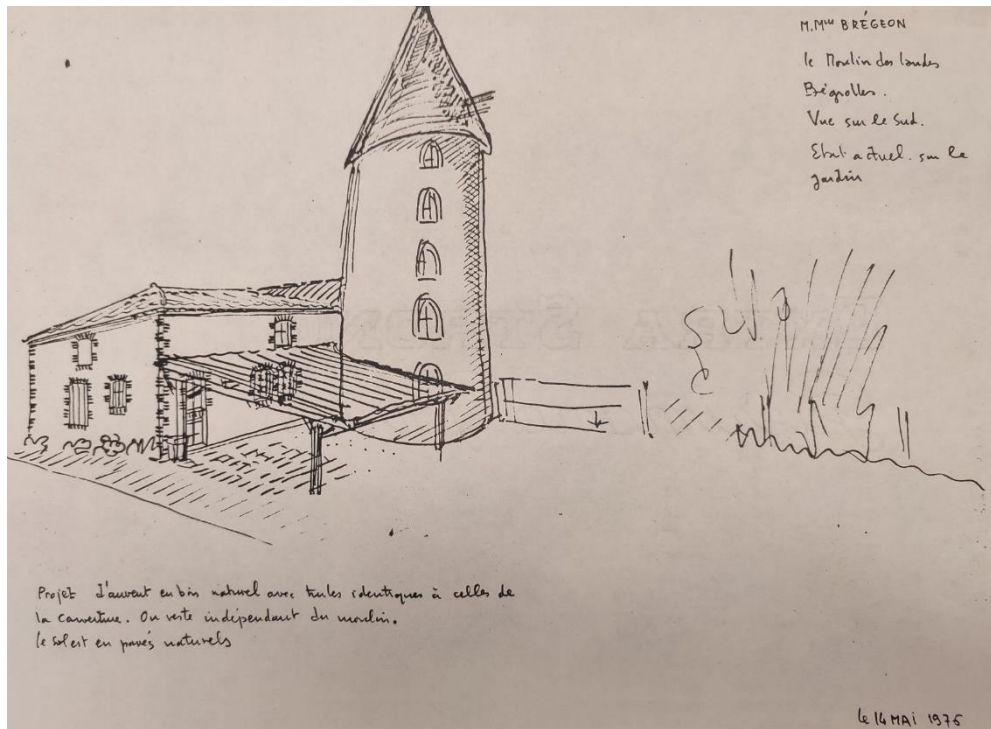 M. Mme BRÉGEON
le Moulin des landes
Bégrolles.
Vue sur le Sud.
Etat actuel. sur le
jardin
Projet d'auvent en bois naturel avec tuiles identiques à celles de
la couverture. On reste indépendant du moulin.
le sol est en pavés naturels
le 14 MAI 1976